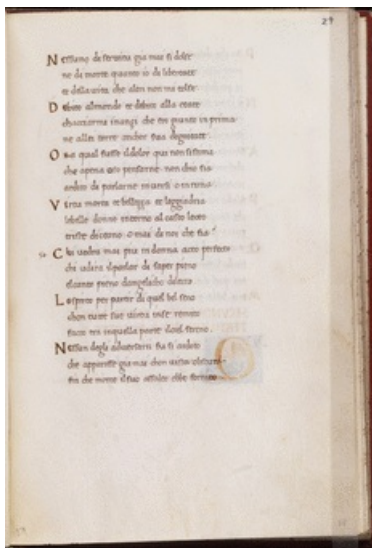 29
Nessuno di servitu gia mai si dolse
ne di morte quanto io di libertate
et della vita che altri non mi tolse
Debito al mondo et debito alla etate
chacciarmi inanzi che ero giunto in prima
ne allui torre ancor sua degnitate
Or qual fusse il dolor qui non si stima
che apena oso pensarne non chio sia
ardito di parlarne in versi o in rima
Virtu morta et bellezza et leggiadria
le belle donne intorno al casto lecto
triste diceano o mai di noi che fia
Chi vedra mai piu in donna acto perfecto
chi udira il parlar di saper pieno
el canto pieno dangelicho dilecto
Lo spirto per partir di quel bel seno
chon tutte sue virtu in se romito
facto era in quella parte il ciel sereno
Nessun degli adversarii fu si ardito
che apparisse gia mai chon vista obscura
fin che morte il suo assalto ebbe fornito